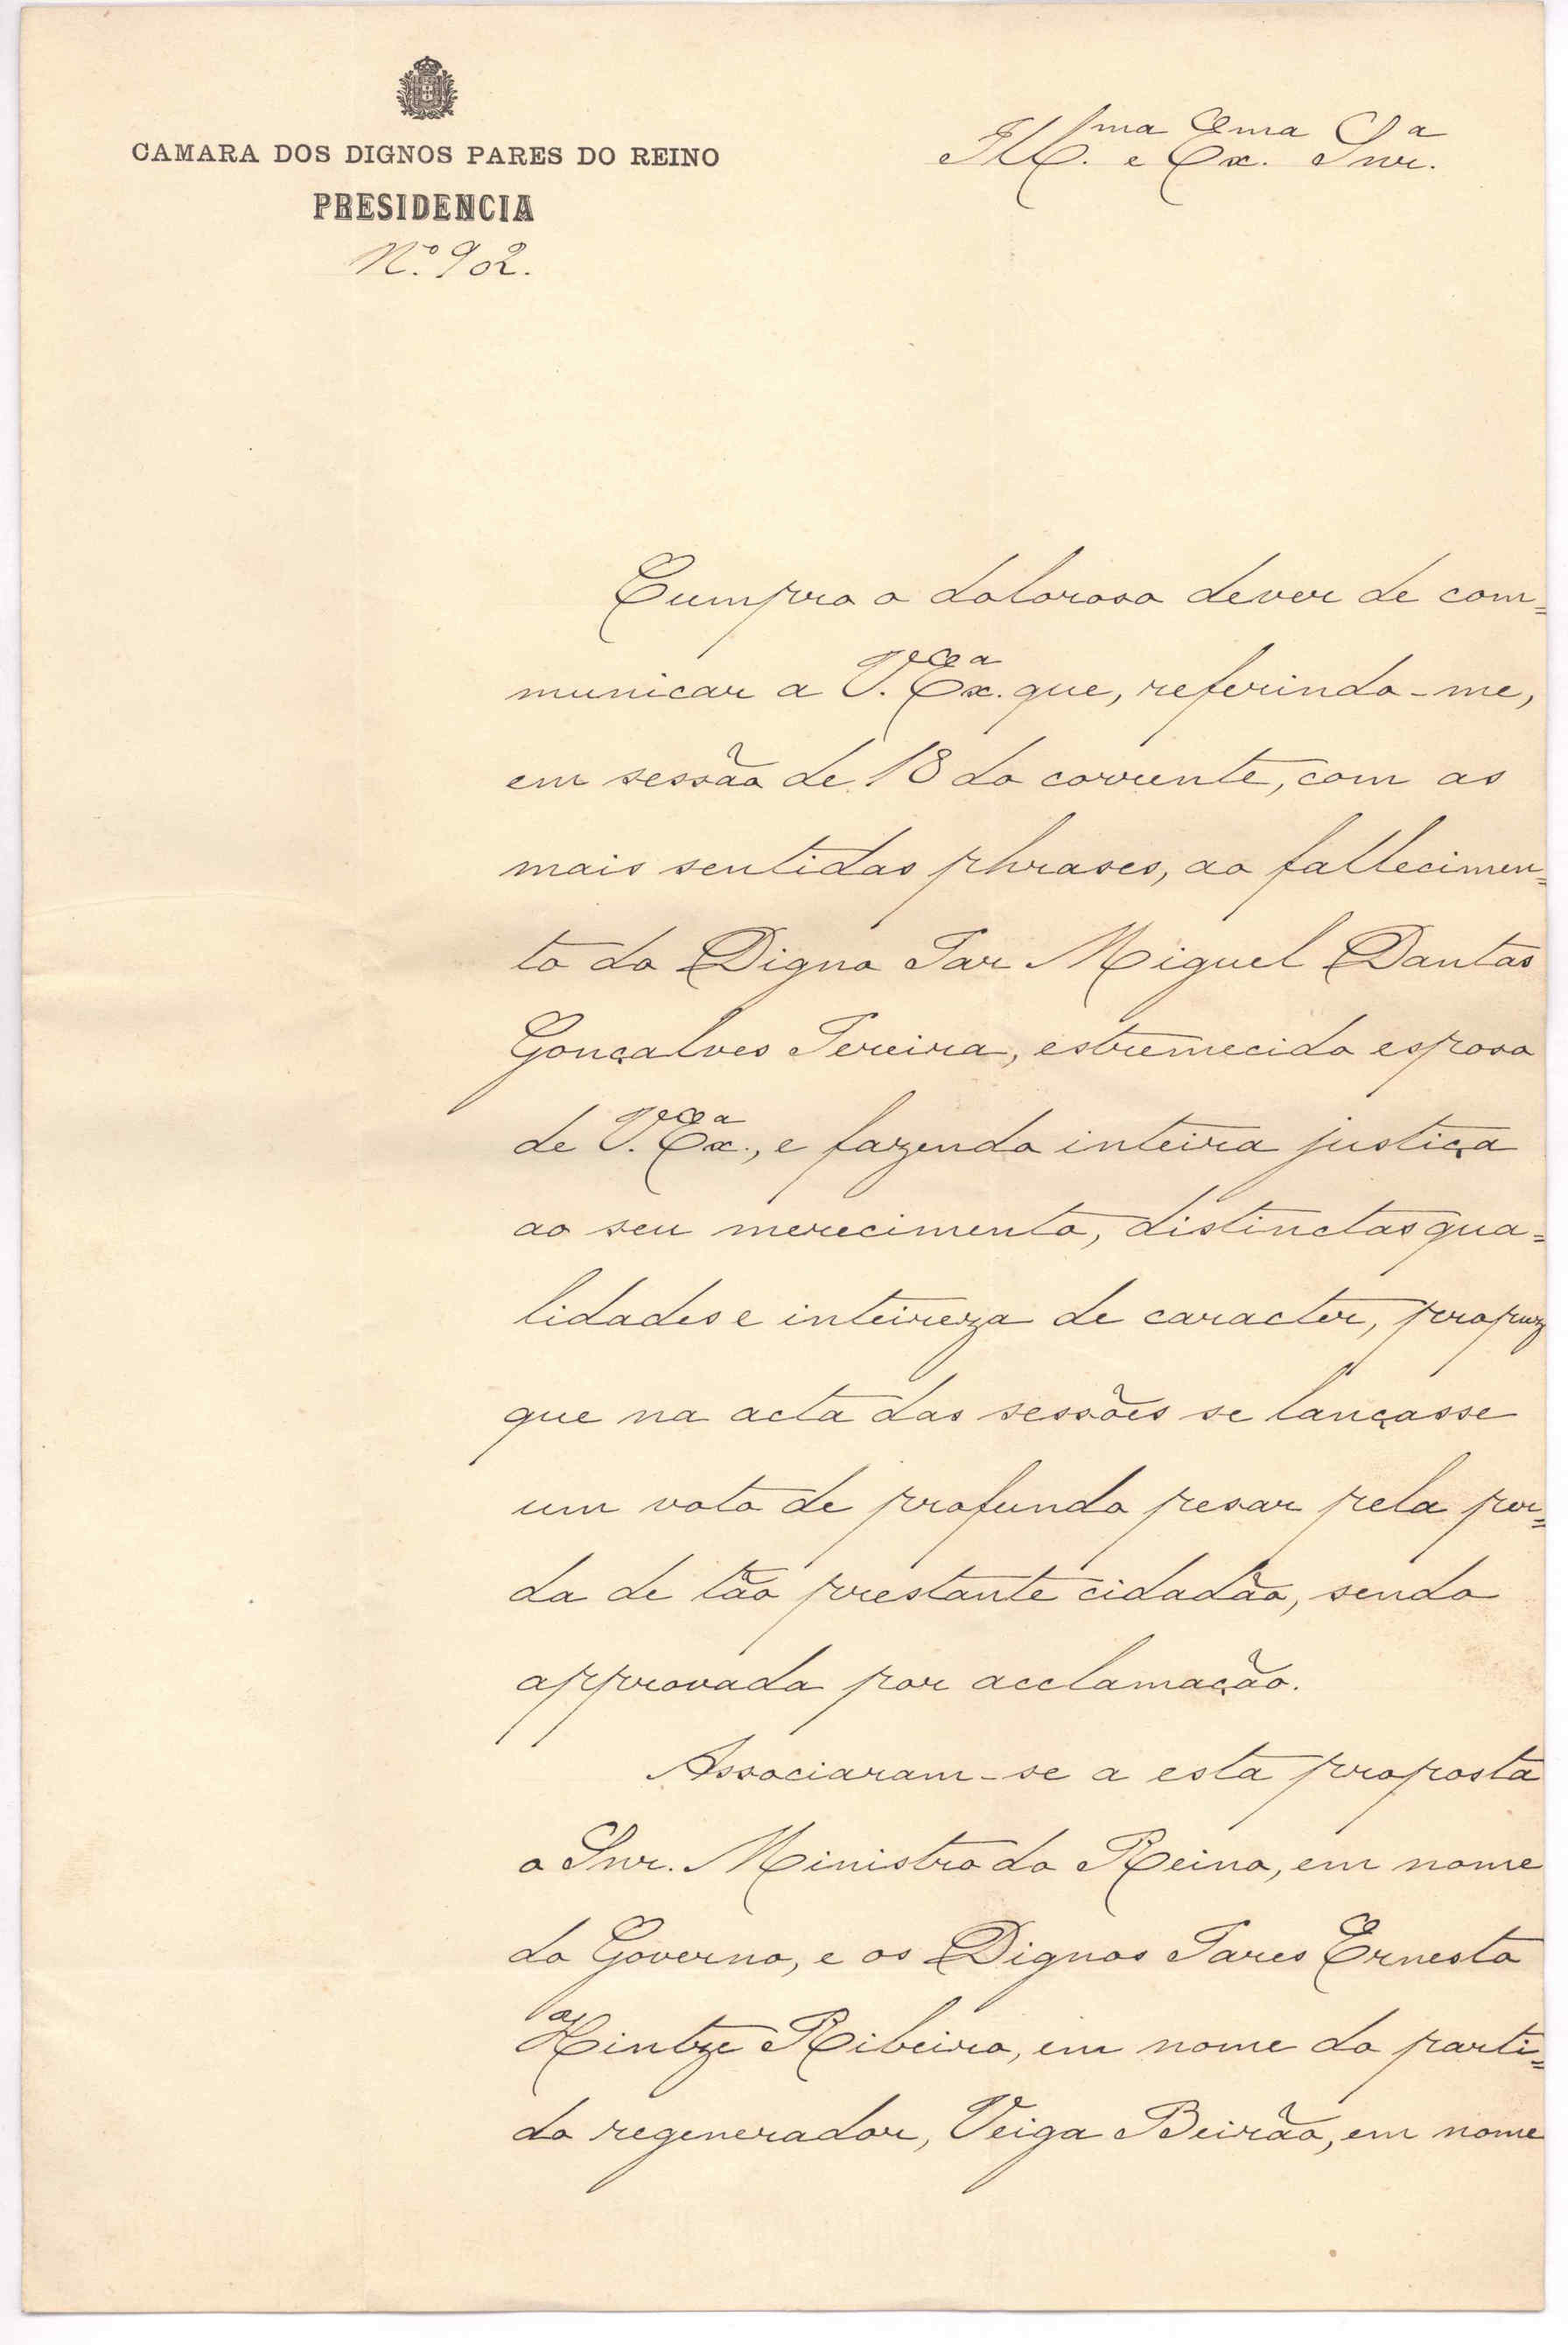 CAMARA DOS DIGNOS PARES DO REINO
PRESIDENCIA
Nº 902.
Ill.ma e Ex.ma Snr.a
Cumpro o doloroso dever de com=
municar a V. Ex.a que, referindo-me,
em sessão de 18 do corrente, com as
mais sentidas phrases, ao fallecimen=
to do Digno Par Miguel Dantas
Gonçalves Pereira, estremecido esposo
de V. Ex.a, e fazendo inteira justiça
ao seu merecimento, distinctas qua=
lidades e inteireza de caracter, propuz
que na acta das sessões se lançasse
um voto de profundo pesar pela per=
da de tão prestante cidadão, sendo
approvada por acclamação.
Associaram-se a esta proposta
o Snr. Ministro do Reino, em nome
do Governo, e os Dignos Pares Ernesto
Hintze Ribeiro, em nome do parti=
do regenerador, Veiga Beirão, em nome